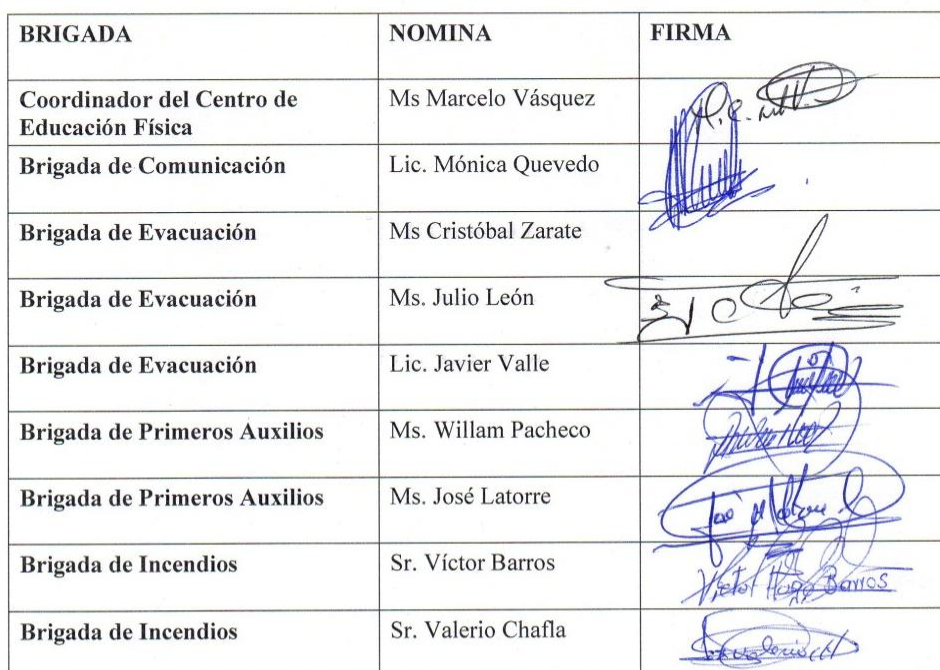 BRIGADA NOMINA FIRMA
Coordinador del Centro de Ms Marcelo Vásquez
Educación Física
Brigada de Comunicación Lic. Mónica Quevedo
Brigada de Evacuación Ms Cristóbal Zarate
Brigada de Evacuación Ms. Julio León
Brigada de Evacuación Lic. Javier Valle
Brigada de Primeros Auxilios Ms. Willam Pacheco
Brigada de Primeros Auxilios Ms. José Latorre
Brigada de Incendios Sr. Víctor Barros
Victor Hugo Barros
Brigada de Incendios Sr. Valerio Chafla